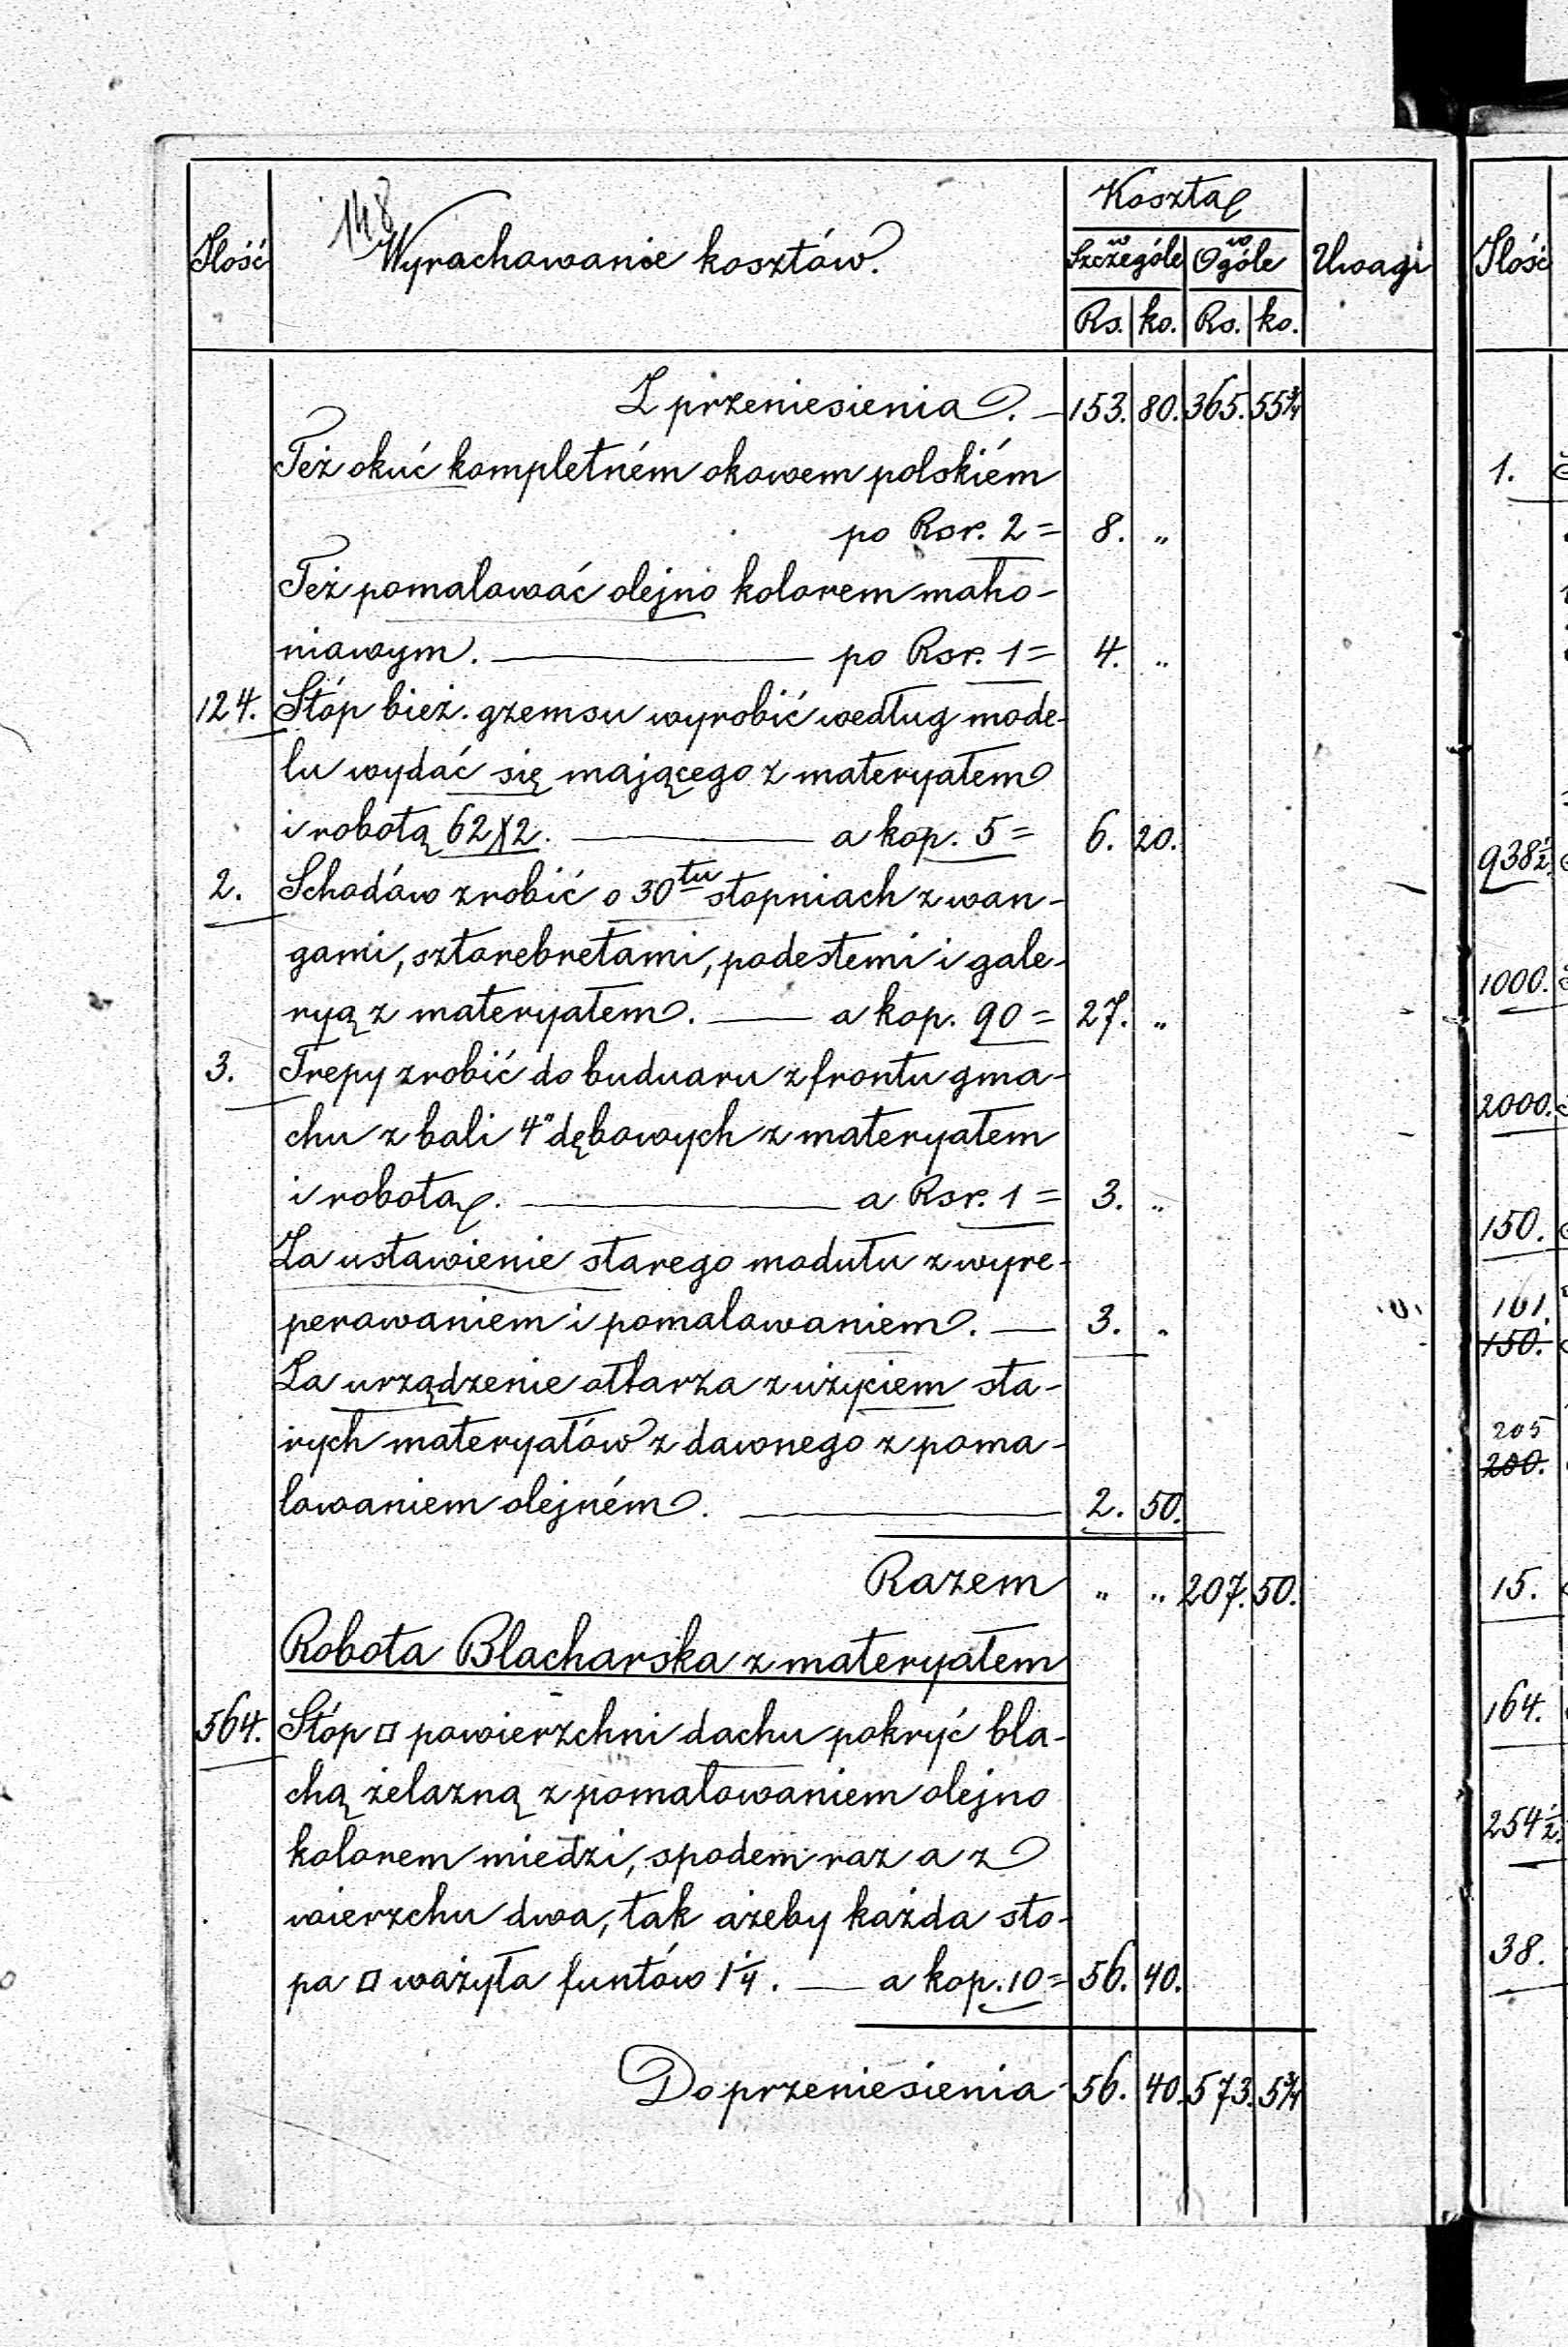 148
Ilość Wyrachowanie kosztów. Koszta Uwagi Ilość
w Szczególe w Ogóle
Rs. ko. Rs. ko.
Z przeniesienia. — 153. 80. 365. 55 3/4
Też okuć kompletném okowem polskiém
po Rsr. 2 = 8. "
Też pomalować olejno kolorem maho-
niowym. — po Rsr. 1 = 4. "
124. Stóp bież. gzemsu wyrobić według mode-
lu wydać się mającego z materyałem
i robotą 62X2. — a kop. 5 = 6. 20.
2. Schodów zrobić o 30tu stopniach z wan-
gami, sztorebretami, podestemi i gale-
ryą z materyałem. — a kop. 90 = 27. "
3. Trepy zrobić do buduaru z frontu gma-
chu z bali 4" dębowych z materyałem
i robotą. — a Rsr. 1 = 3. "
Za ustawienie starego modułu z wyre-
perowaniem i pomalowaniem. — 3. "
Za urządzenie ołtarza z użyciem sta-
rych materyałów z dawnego z poma-
lowaniem olejném. — 2. 50.
Razem " " 207. 50.
Robota Blacharska z materyałem
564. Stóp □ powierzchni dachu pokryć bla-
chą żelazną z pomalowaniem olejno
kolorem miedzi, spodem raz a z
wierzchu dwa, tak ażeby każda sto-
pa □ ważyła funtów 1 1/4. — a kop. 10 = 56. 40.
Do przeniesienia - 56. 40. 573. 5 3/4
1.
938 1/2
1000.
2000.
150.
161.
150.
205
200.
15.
164.
254 1/2
38.